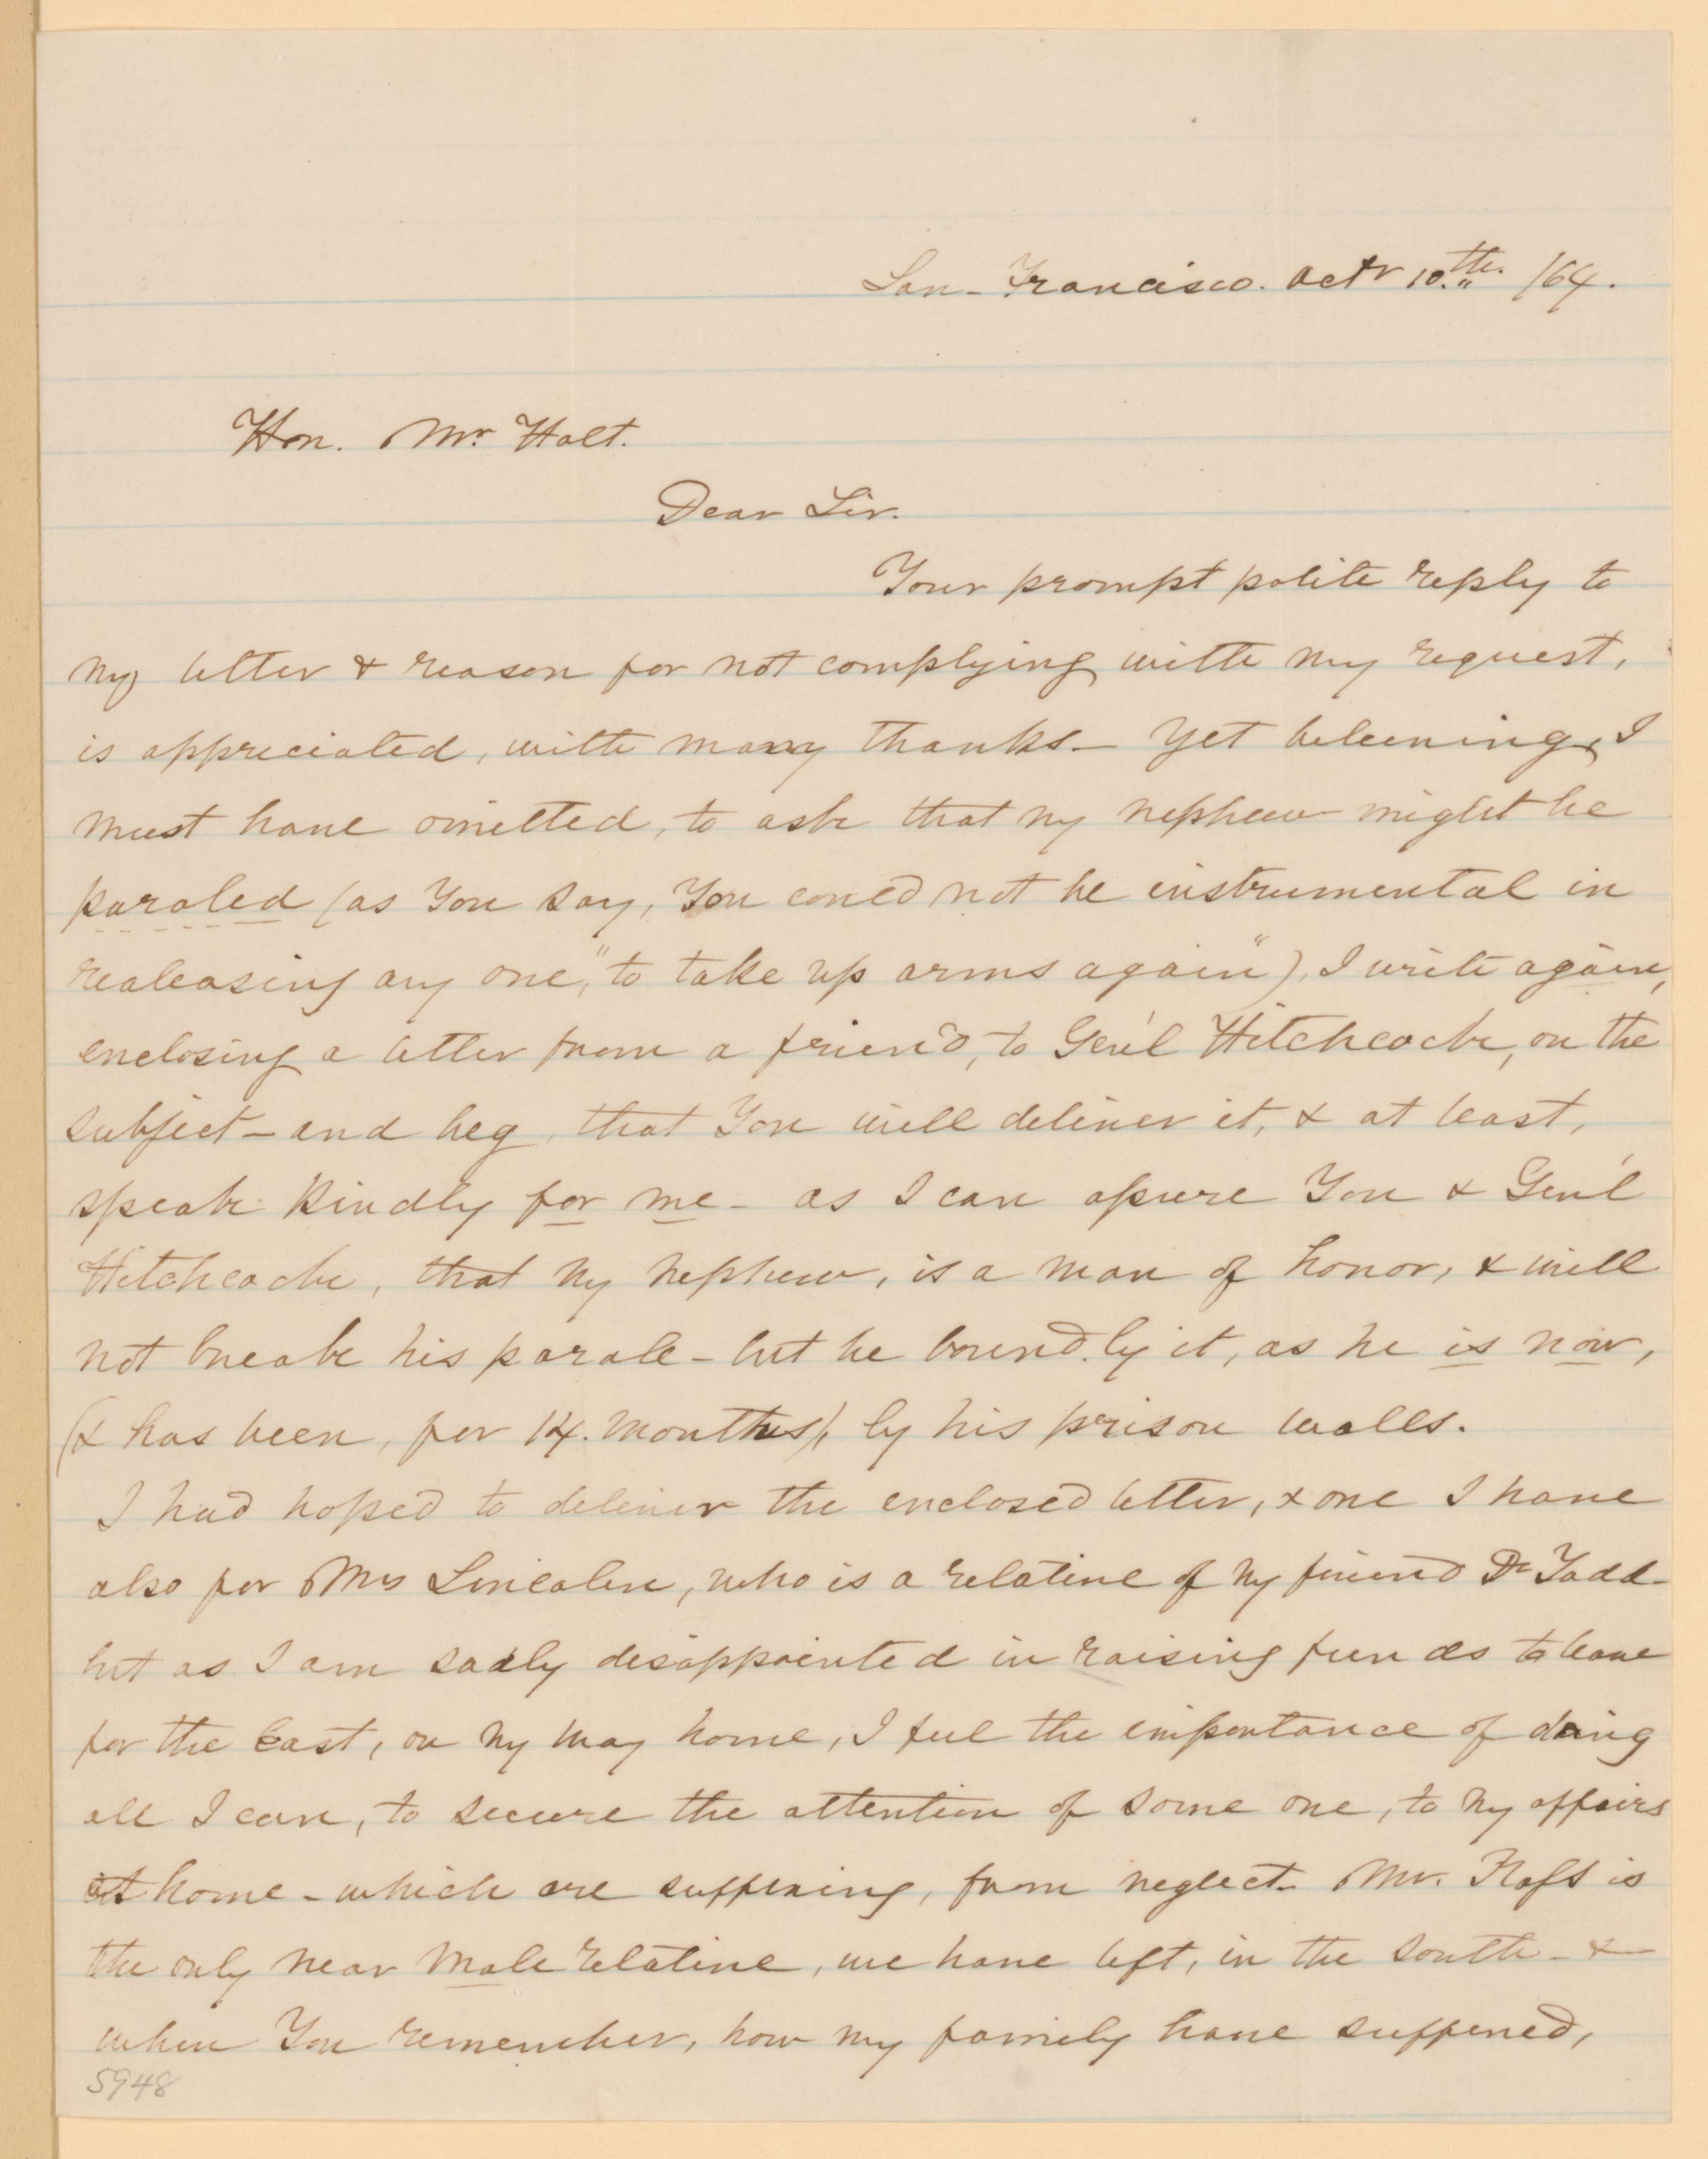 San-Francisco. Octr 10.th /64.
Hon. Mr Holt.
Dear Sir.
Your prompt polite reply to
my letter & reason for not complying with my request,
is appreciated, with many thanks- Yet beleeving, I
must have omitted, to ask that my nephew might be
paroled (as You say, You could not be instrumental in
realeasing any one, "to take up arms again"), I write again,
enclosing a letter from a friend, to Gen'l Hitchcock, on the
subject - and beg, that You will deliver it, & at least,
speak kindly for me - as I can assure You & Gen'l
Hitchcock, that my nephew, is a man of honor, & will
not break his parole - but be bound by it, as he is now,
(& has been, for 14. months), by his prison walls.
I had hoped to deliver the enclosed letter, & one I have
also for Mrs Lincoln, who is a relative of my friend Dr Todd-
but as I am sadly disappointed in raising funds to leave
for the East, on my way home, I feel the importance of doing
all I can, to secure the attention of some one, to my affairs
at home - which are suffering, from neglect- Mr. is
the only near male relative, we have left, in the South - &
when You remember, how my family have suffered,
5948